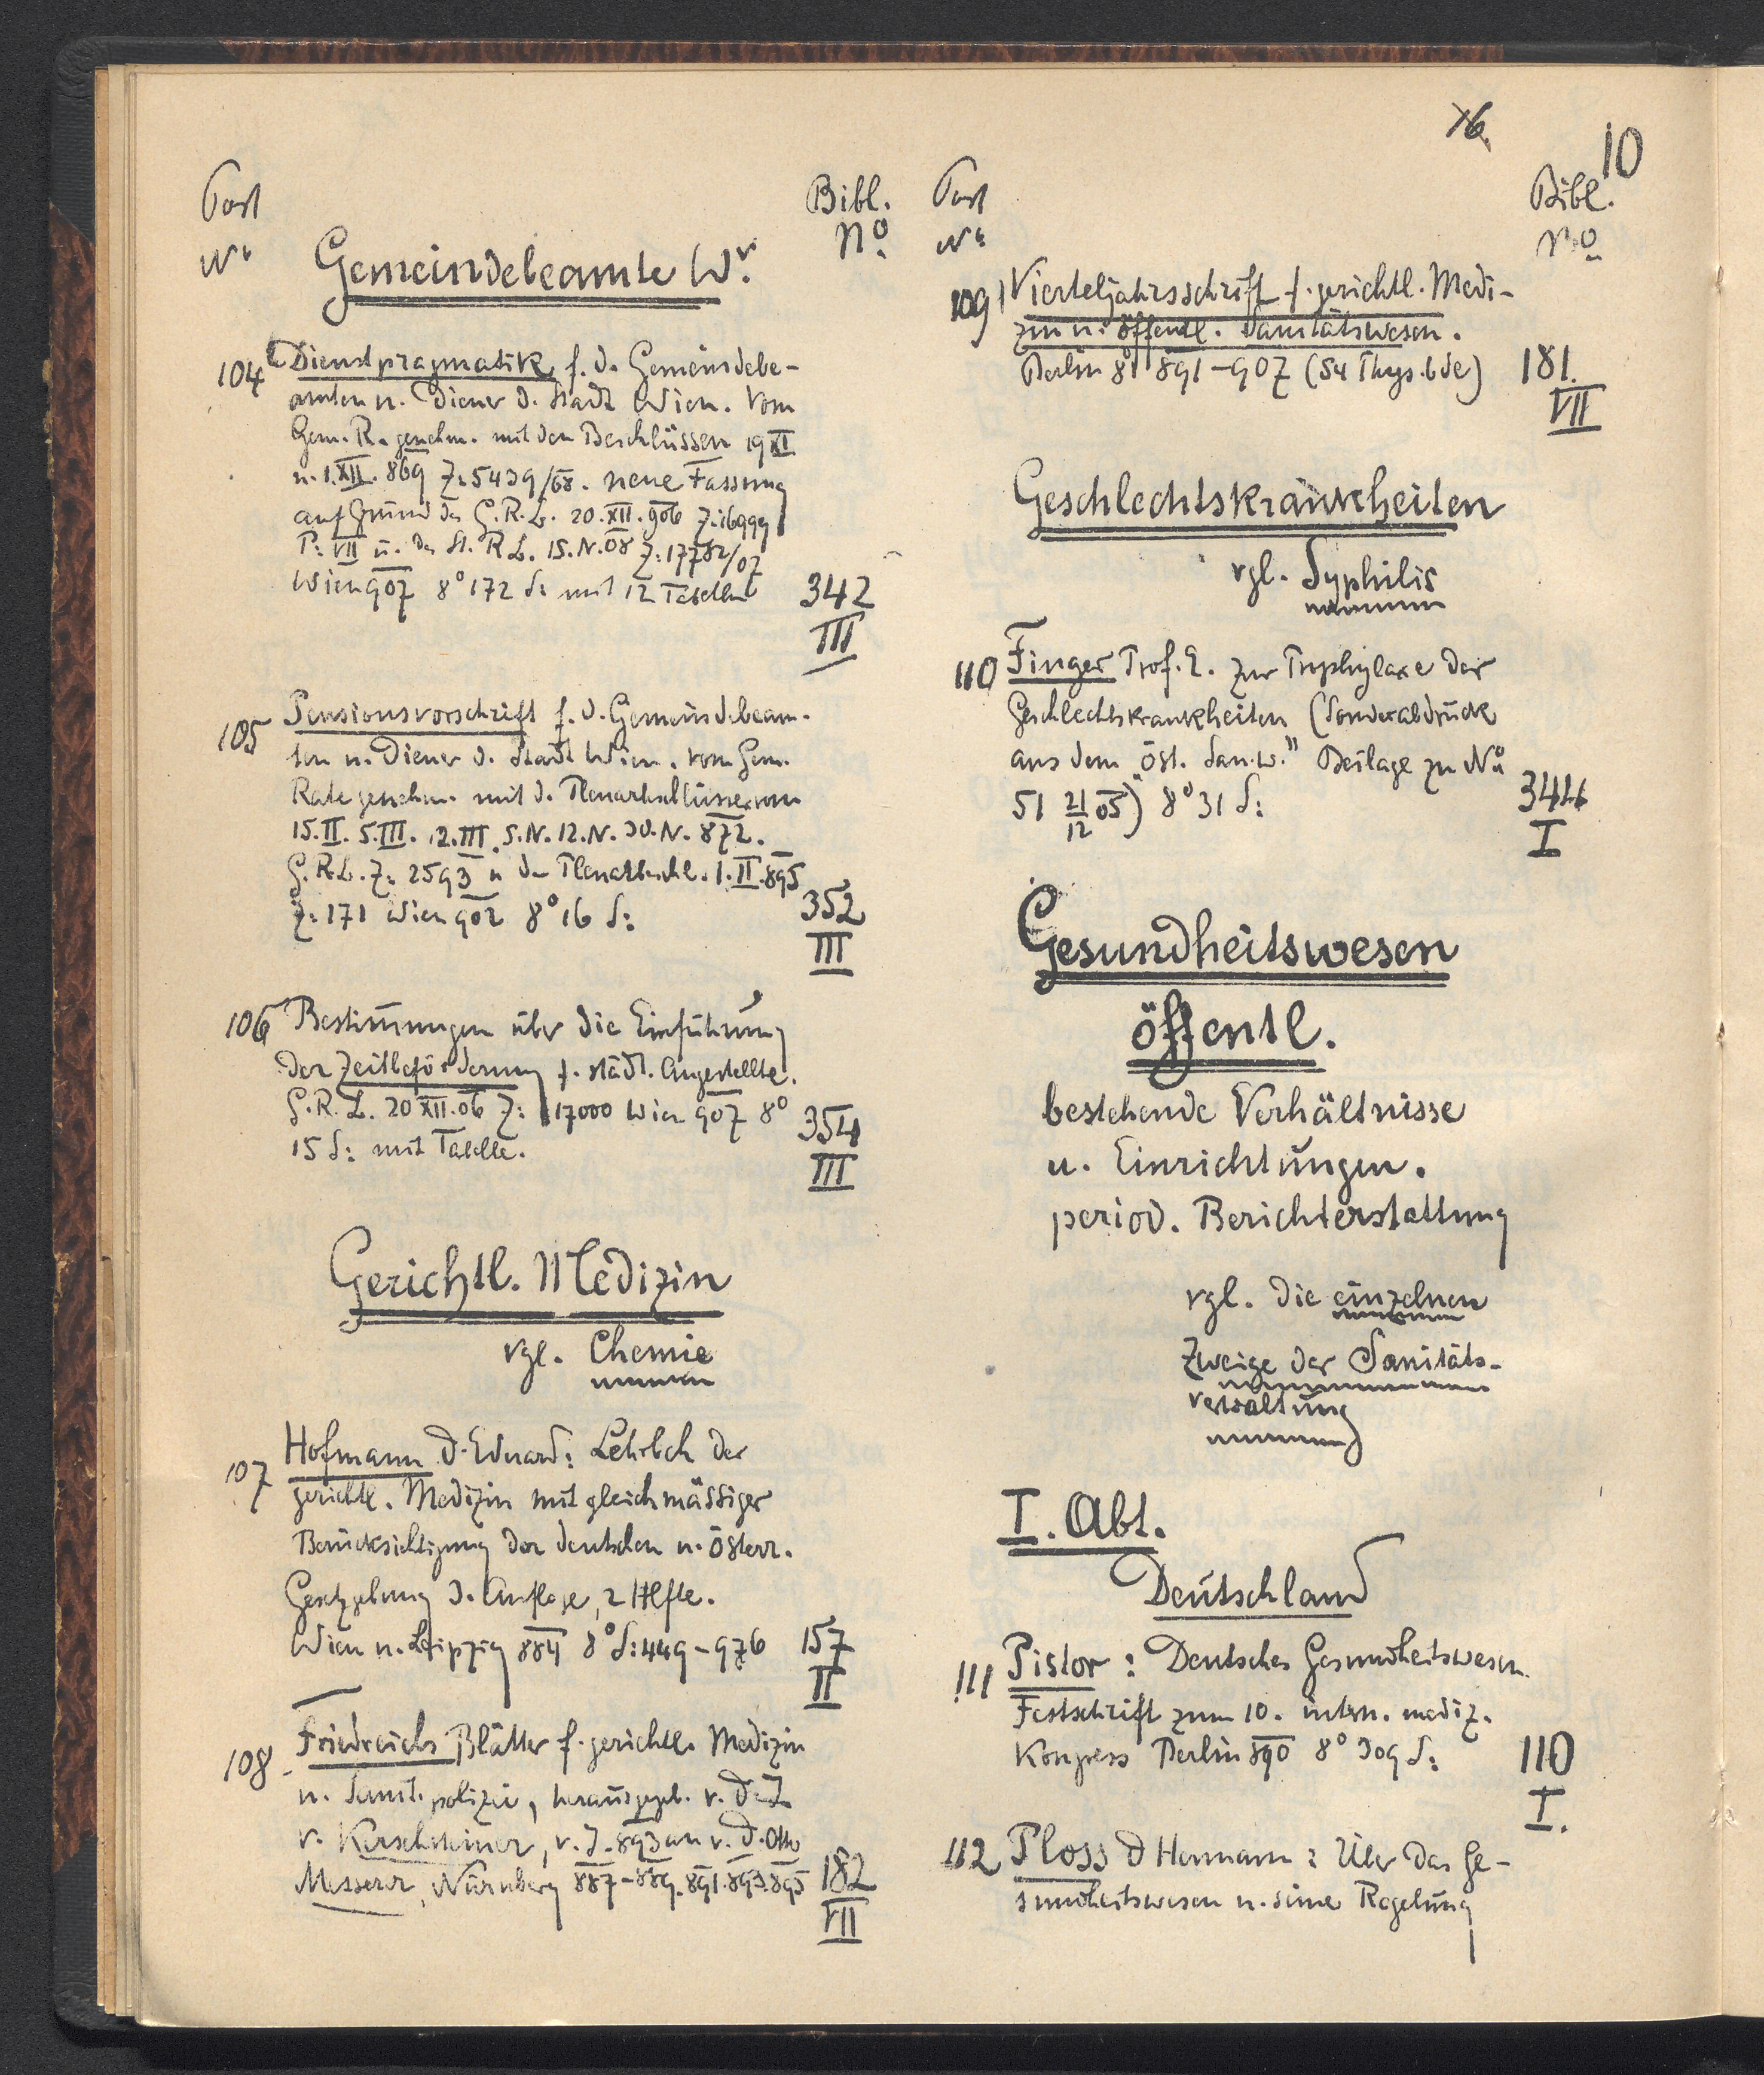 76.
10
Post
No
Bibl.
No
Gemeindebeamte Wn.
104 Dienstpragmatik f. d. Gemeindebe-
amten u. Diener d. Stadt Wien. Vom
Gem. R. genehm. mit den Beschlüssen 19 XI
u. 1. XII. 869 Z: 5439/68. neue Fassung
auf Grund des G. R. B. 20. XII. 906 Z: 16999
P: VII u. des St. R. B. 15. IV. 08 Z: 17782/07
Wien 907 8° 172 S: mit 12 Tabellen
342
III
105 Pensionsvorschrift f. d. Gemeindebeam-
ten u. Diener d. Stadt Wien. vom Gem.
Rate genehm. mit d. Plenarbeschlüssen vom
15. II. 5. III. 12. III. 5. IV. 12. IV. 30. IV. 872.
G. R. B. Z: 2593 u. d. Plenarbeschl. 1. II. 895
Z: 171 Wien 902 8° 16 S:
352
III
106 Bestimmungen über die Einführung
der Zeitbeförderung f. städt. Angestellte.
G. R. B. 20 XII. 06 Z: 17000 Wien 907 8°
15 S: mit Tabelle.
354
III
Gerichtl. Medizin
vgl. Chemie
107 Hofmann D. Eduard: Lehrbch der
gerichtl. Medizin mit gleichmässiger
Berücksichtigung der deutschen u. österr.
Gesetzgebung 3. Auflage, 2 Hlfte.
Wien u. Leipzig 884 8° S: 449-976
157
II
108 Friedreichs Blätter f. gerichtl. Medizin
u. Sanit. polizei, herausgegeb. v. D. J.
v. Kerschsteiner, v. J. 893 an v. D. Otto
Messerer, Nürnberg 887-889. 891. 893. 895
182
VII
Post
No
Bibl.
No
109 Vierteljahrsschrift f. gerichtl. Medi-
zin u. öffentl. Sanitätswesen.
Berlin 8° 891-907 (54 Thys. bde)
181.
VII
Geschlechtskrankheiten
vgl. Syphilis
110 Finger Prof. E. zur Prophylaxe der
Geschlechtskrankheiten (Sonderabdruck
aus dem „öst. San. w." Beilage zu No
51 21/12 05) 8° 31 S:
344
I
Gesundheitswesen
öffentl.
bestehende Verhältnisse
u. Einrichtungen.
period. Berichterstattung
vgl. die einzelnen
Zweige der Sanitäts-
verwaltung
I. Abt.
Deutschland
111 Pistor: Deutsches Gesundheitswesen.
Festschrift zum 10. intern. mediz.
Kongress Berlin 890 8° 309 S:
110
I.
112 Ploss D Hermann: Über das Ge-
sundheitswesen u. seine Regelung